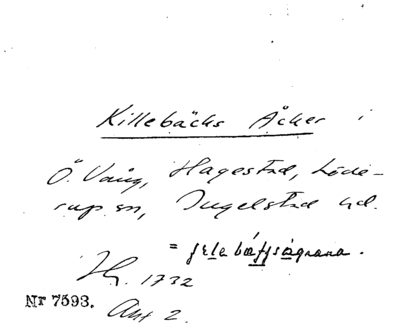 Killebäcks Åcker
Ö. Vång, Hagestad, Löde-
rup sn, Ingelstad hd.
= jele bäffságrana.
1732
Nr 7593. Akt 2.